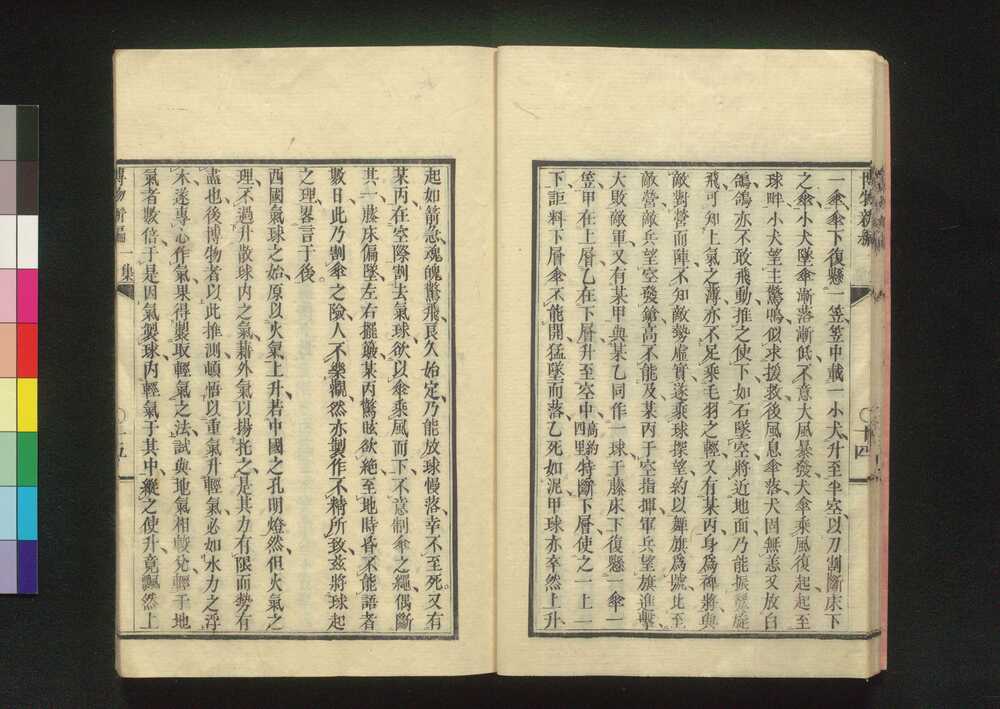 博物新編
十四
一傘傘下復懸一笠笠中載一小犬升至半空以刀割斷床下
之傘小犬墜傘漸落漸低不意大風暴發犬傘乘風復起起至
球畔小犬望主驚鳴似求援救後風息傘落犬固無恙又放白
鴿鴿亦不敢飛動推之使下如石墜空將近地面乃能振翼旋
飛可知上氣之薄亦不足乘毛羽之輕又有某丙身爲裨將與
敵對營而陣不知敵勢虛實遂乘球探望約以舞旗爲號比至
敵營敵兵望空發鎗高不能及某丙于空指揮軍兵望旗進擊
大敗敵軍又有某甲與某乙同作一球于藤床下復懸一傘一
笠甲在上層乙在下層升至空中高約四里特斷下層使之一上一
下詎料下層傘不能開猛墜而落乙死如泥甲球亦卒然上升
起如箭急魂魄驚飛良久始定乃能放球慢落幸不至死又有
某丙在空際割去氣球欲以傘乘風而下不意制傘之繩偶斷
其一藤床偏墜左右擺簸某丙驚眩欲絶至地時昏不能語者
數日此乃割傘之險人不樂觀然亦製作不精所致茲將球起
之理畧言于後
西國氣球之始原以火氣上升若中國之孔明燈然但火氣之
理不過升散球内之氣藉外氣以揚托之是其力有限而勢有
盡也後博物者以此推測頓悟以重氣升輕氣必如水力之浮
木遂專心作氣果得製取輕氣之法試與地氣相較允輕于地
氣者數倍于是因氣製球内輕氣于其中縱之使升竟飄然上
博物新編 一集
十五